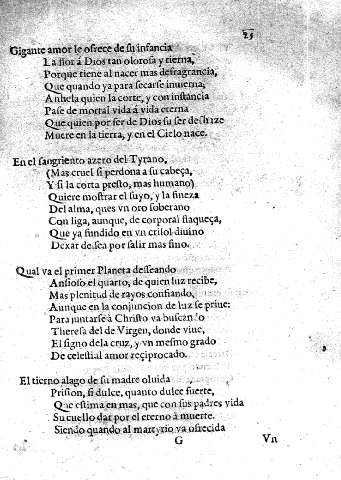 25
Gigante amor le ofrece de su infancia
La flor á Dios tan olorosa y tierna,
Porque tiene al nacer mas defragrancia,
Que quando ya para secarse inuierna;
Anhela quien la corte, y con instancia
Pase de mortal vida á vida eterna
Que quien por ser de Dios su ser deshize
Muere en la tierra, y en el Cielo nace.
En el sangriento azero del Tyrano,
(Mas cruel si perdona a su cabeça,
Y si la corta presto, mas humano)
Quiere mostrar el suyo, y la fineza
Del alma, ques vn oro soberano
Con liga, aunque, de corporal flaqueça,
Que ya fundido en vn crisol diuino
Dexar desea por salir mas fino.
Qual va el primer Planeta desseando
Ansioso el quarto, de quien luz recibe,
Mas plenitud de rayos confiando,
Aunque en la conjuncion de luz se priue:
Para juntarse à Christo va buscando
Theresa del de Virgen, donde viue,
El signo dela cruz, y vn mesmo grado
De celestial amor reciprocado.
El tierno alago de su madre oluida
Prision, si dulce, quanto dulce fuerte,
Que estima en mas, que con sus padres vida
Su cuello dar por el eterno à muerte.
Siendo quando al martyrio va ofrecida
G Vn